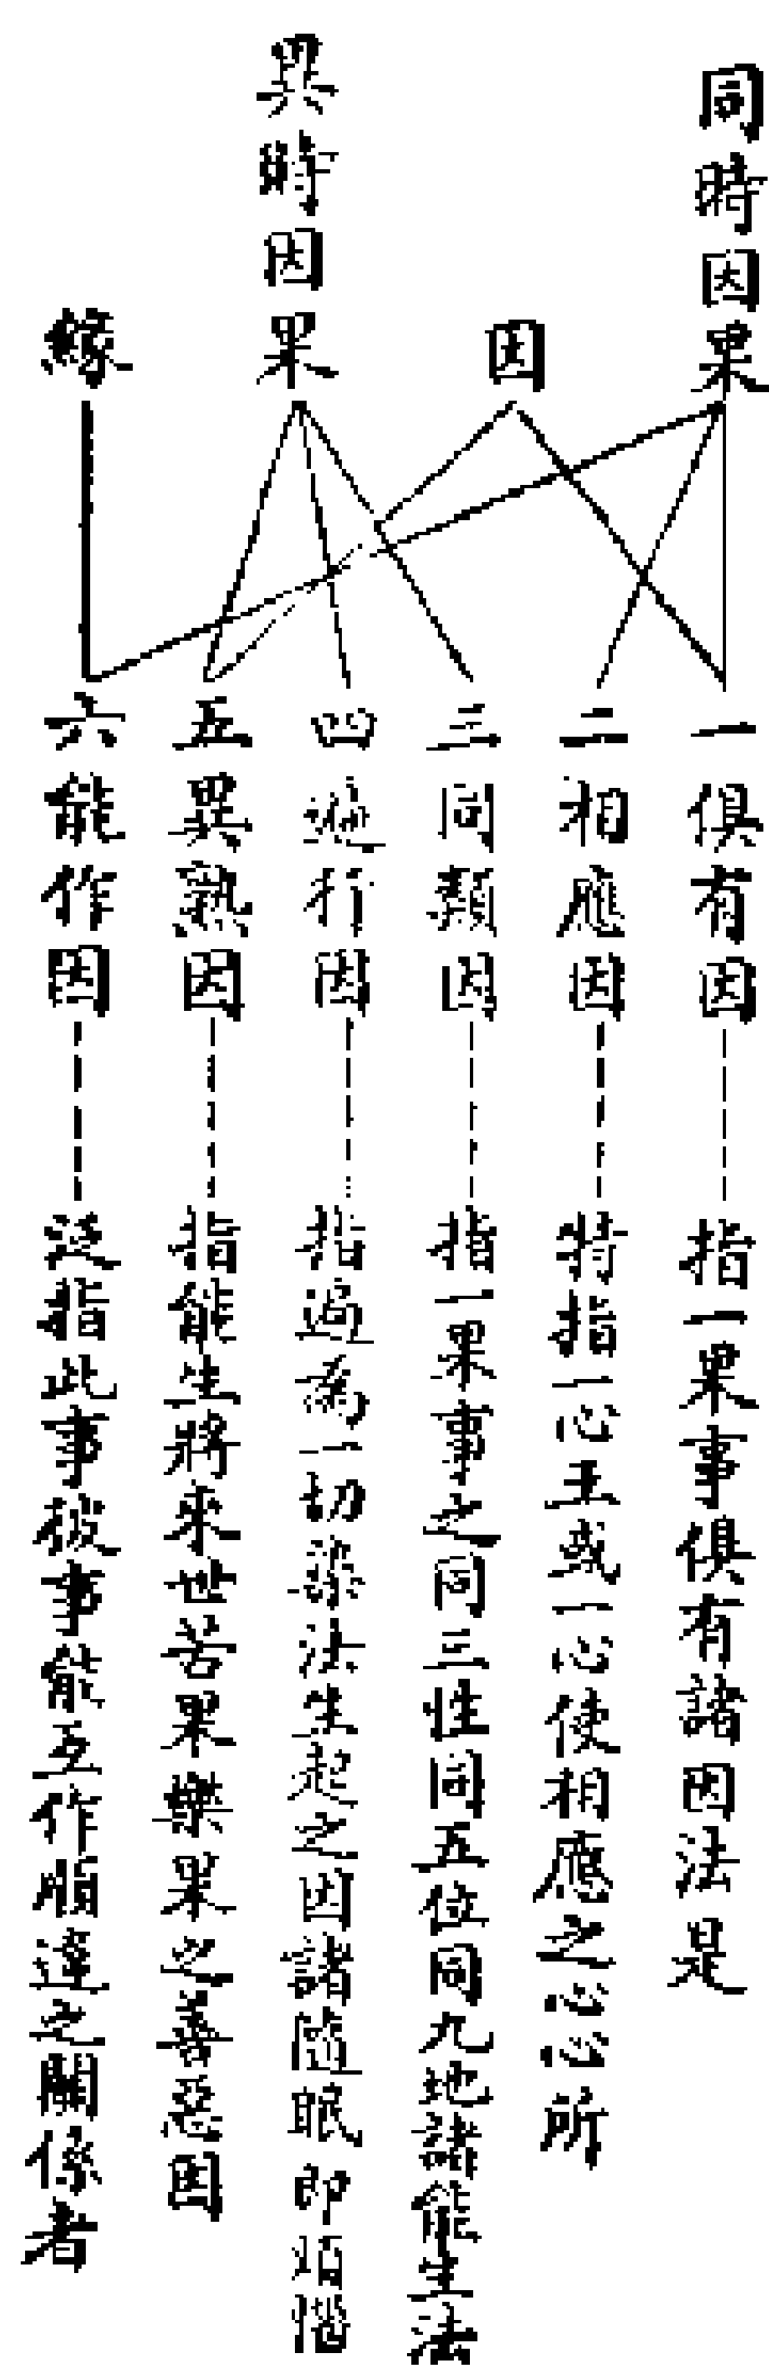 同時因果
因
異時因果
緣
一俱有因
指一果事俱有諸因法是
二相應因
特指一心王或一心使相應之心心所
三同類因
指一果事之同三性同五位同九地諸能生法
四遍行因
指遍為一切染法生起之因諸隨眠即煩惱
五異熟因
指能生將來世苦果樂果之善惡因
六能作因
泛指此事彼事能互作順違之關係者